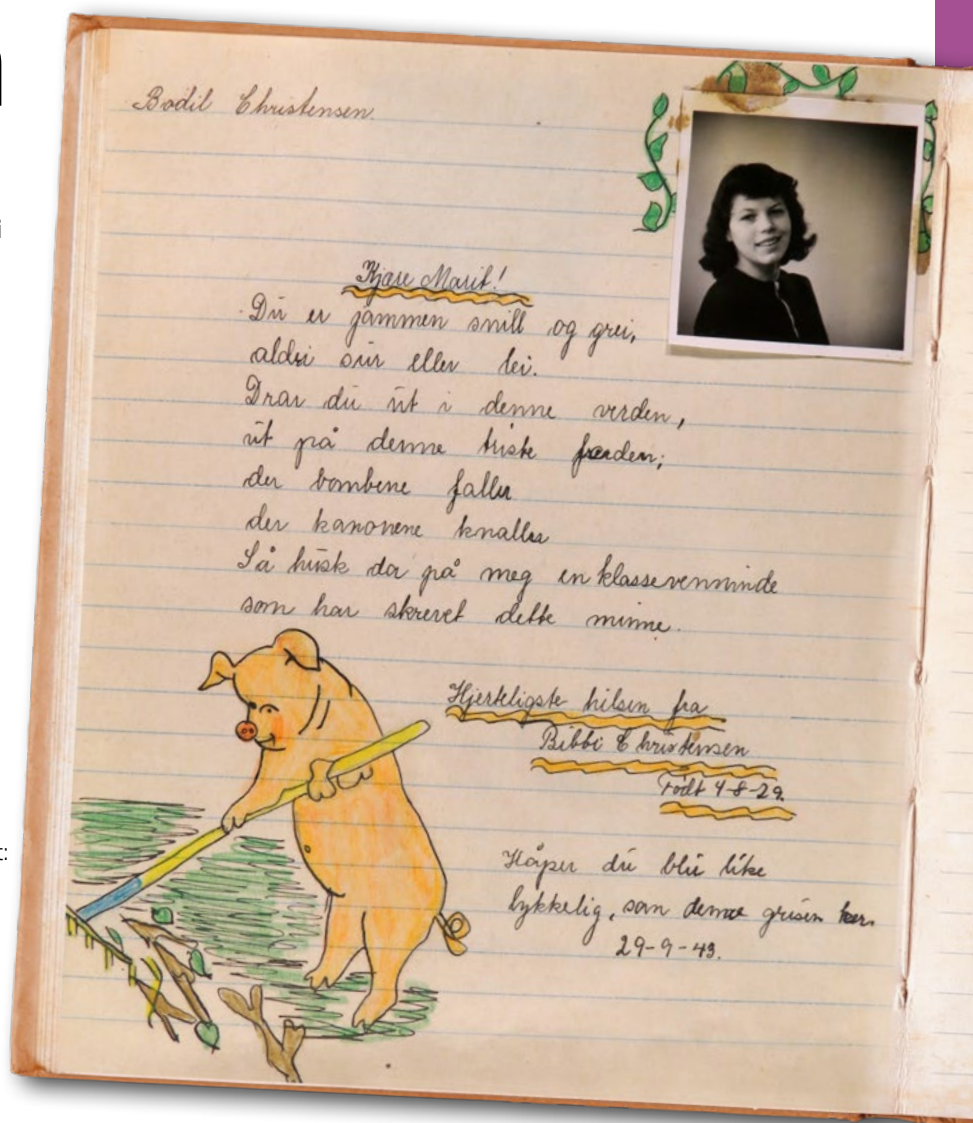 Bodil Christensen
Kjære Marit!
Du er jammen snill og grei,
aldri sur eller lei.
Drar du ut i denne verden,
ut på denne triste færden;
der bombene faller
der kanonene knaller
Så husk da på meg en klassevenninde
som har skrevet dette minne.
Hjerteligste hilsen fra
Bibbi Christensen
Født 4-8-29.
Håper du blir like
lykkelig, som denne grisen her.
29-9-43.